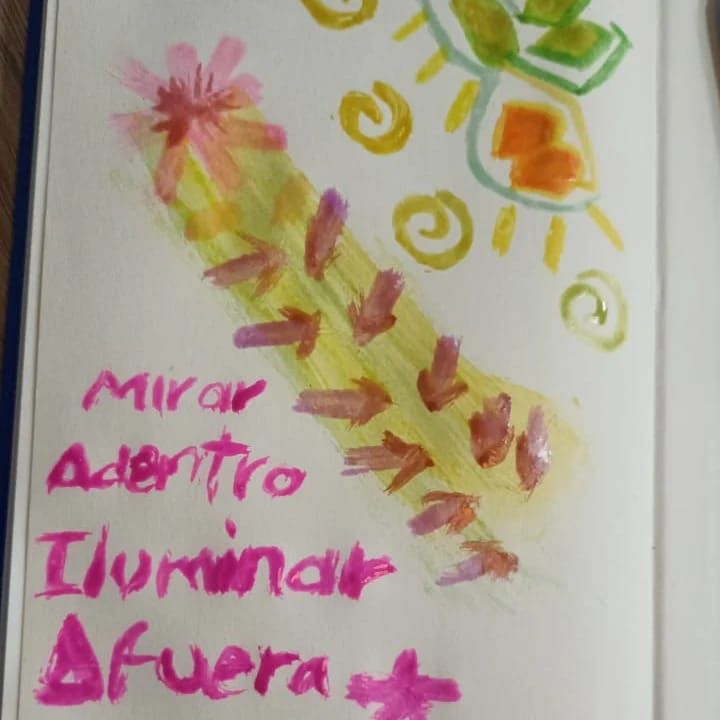 Mirar
Adentro
Iluminar
Afuera